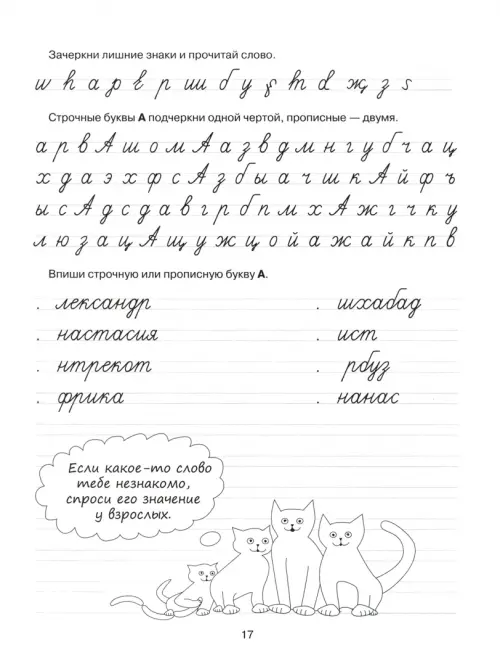 Зачеркни лишние знаки и прочитай слово.
Строчные буквы А подчеркни одной чертой, прописные — двумя.
а р в А ш о м А а з в д м н г у б ч а ц
х д а э х ф с А з б ы а ч ш к А й ф ъ
ы с А д с д а в г р б п м х А ж г ч к у
л ю з а ц А щ у ж ц о й а ж а й к п в
Впиши строчную или прописную букву А.
. лександр . шхабад
. настасия . ист
. нтрекот . рбуз
. фрика . нанас
Если какое-то слово
тебе незнакомо,
спроси его значение
у взрослых.
17